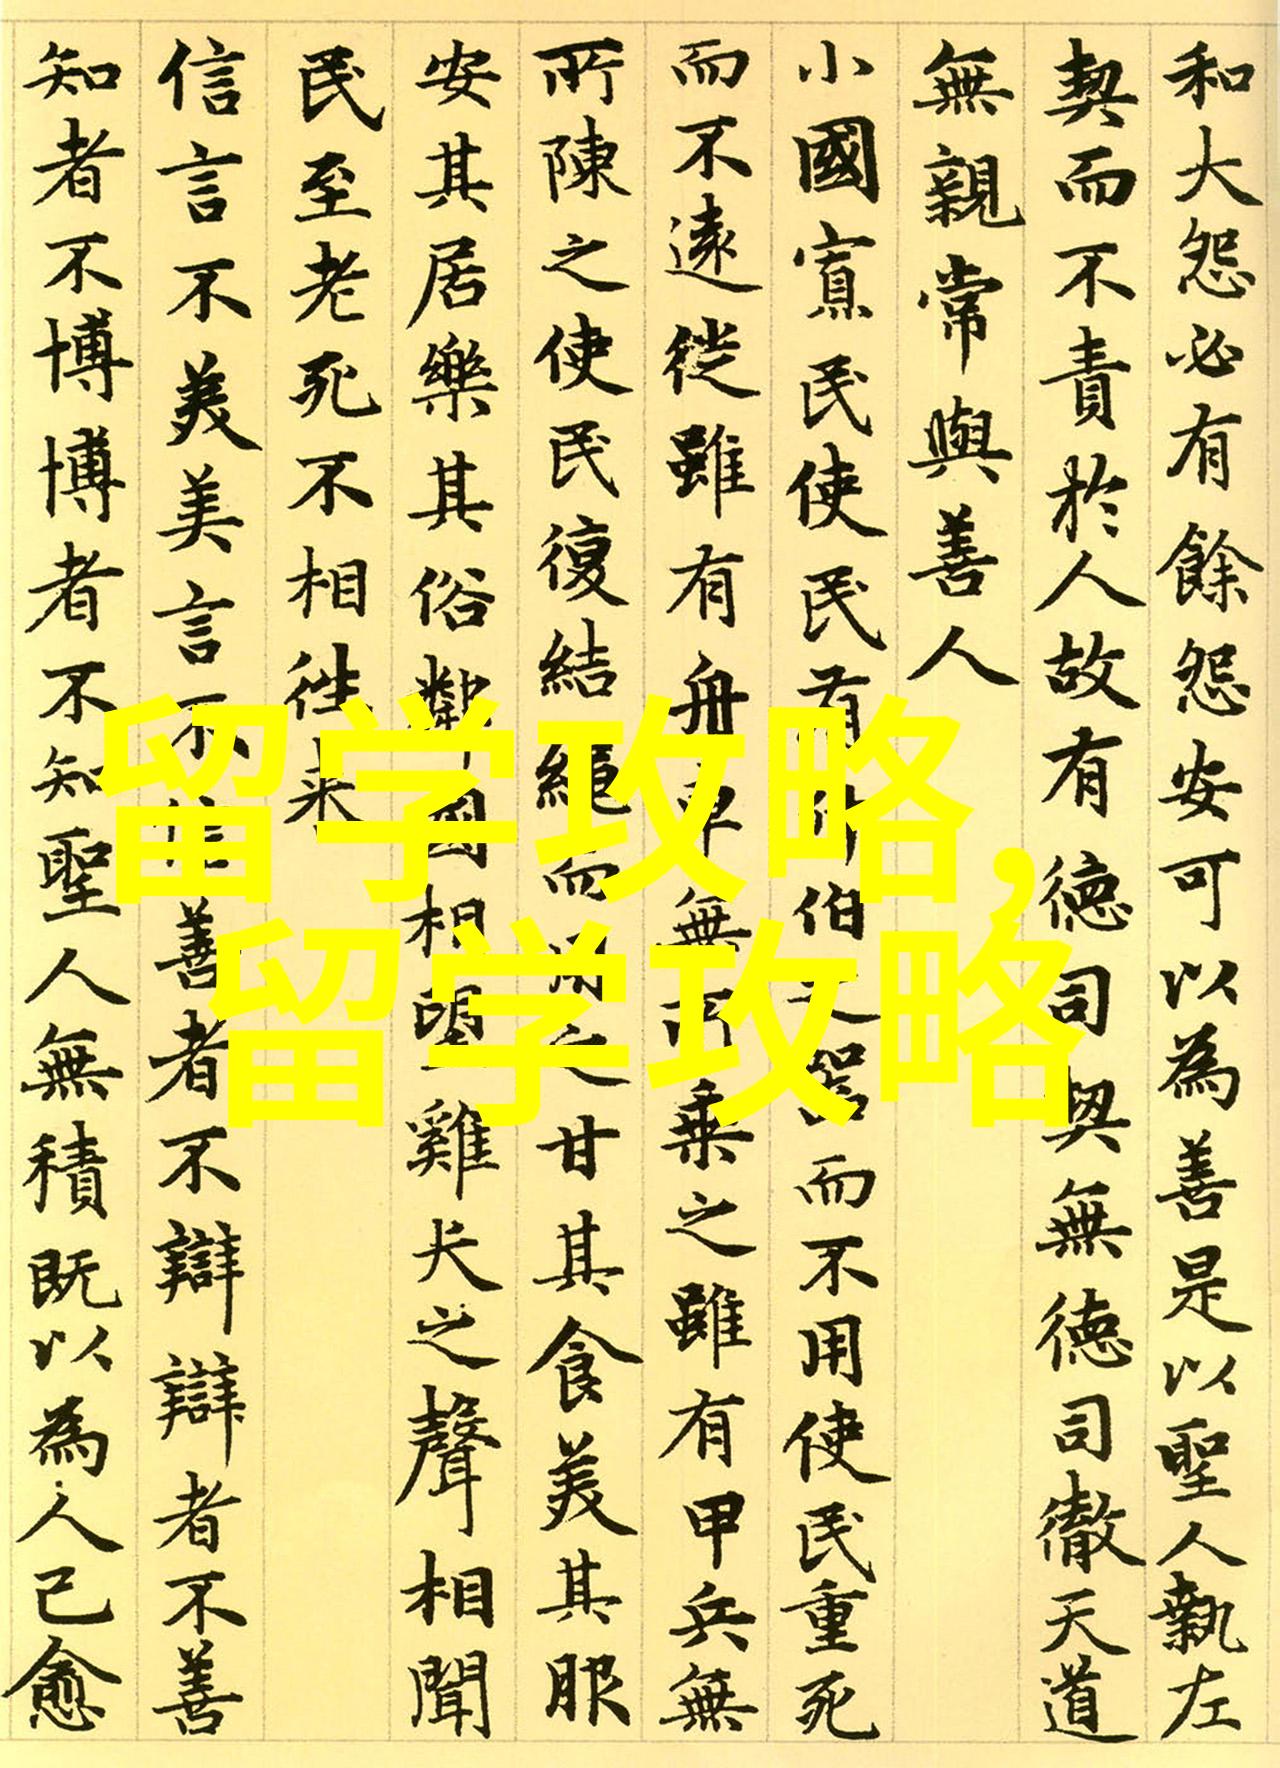 和大怨必有餘怨安可以為善是以聖人執左
契而不責於人故有德司契無德司徹天道
無親常與善人
小國寡民使民有什伯之器而不用使民重死
而不遠徙雖有舟車無所乘之雖有甲兵無
所陳之使民復結繩而用之甘其食美其服
安其居樂其俗鄰國相望雞犬之聲相聞
民至老死不相往来
信言不美美言不信善者不辯辯者不善
知者不博博者不知聖人無積既以為人己愈
留学攻略,
留学攻略